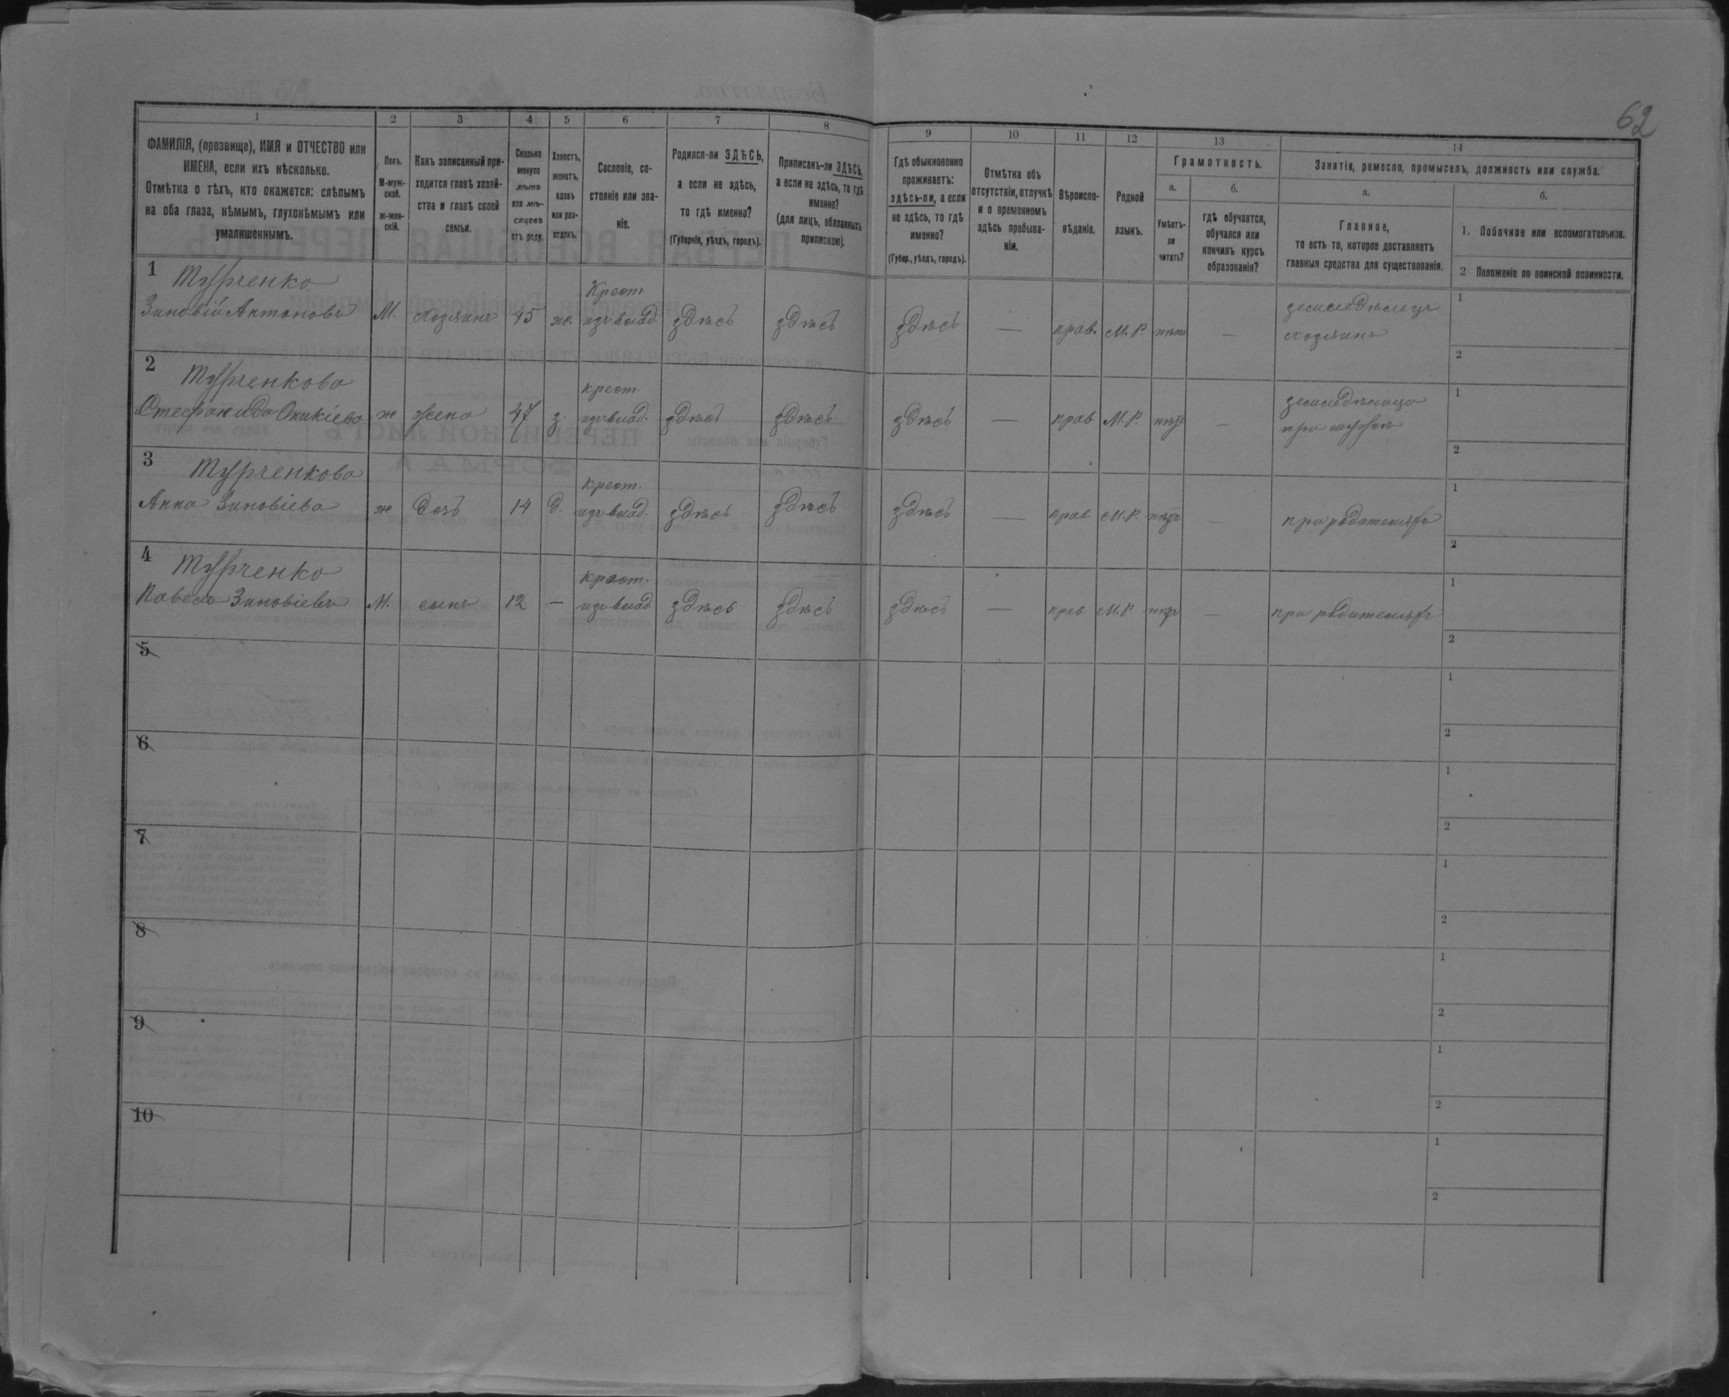 62
1 2 3 4 5 6 7 8 9 10 11 12 13 14
ФАМИЛІЯ, (прозвище), ИМЯ и ОТЧЕСТВО или
ИМЕНА, если ихъ нѣсколько.
Отмѣтка о тѣхъ, кто окажется: слѣпымъ
на оба глаза, нѣмымъ, глухонѣмымъ или
умалишеннымъ.
Полъ.
М-муж-
ской.
ж-жен-
скій.
Какъ записанный при-
ходится главѣ хозяй-
ства и главѣ своей
семьи.
Сколько
минуло
лѣтъ
или мѣ-
сяцевъ
отъ роду.
Холостъ,
женатъ,
вдовъ
или раз-
веденъ.
Сословіе, со-
стояніе или зва-
ніе.
Родился-ли ЗДѢСЬ,
а если не здѣсь,
то гдѣ именно?
(Губернія, уѣздъ, городъ).
Приписанъ-ли ЗДѢСЬ,
а если не здѣсь, то гдѣ
именно?
(для лицъ, обязанныхъ
припискою).
Гдѣ обыкновенно
проживаетъ:
здѣсь-ли, а если
не здѣсь, то гдѣ
именно?
(Губер., уѣздъ, городъ).
Отмѣтка объ
отсутствіи, отлучкѣ
и о временномъ
здѣсь пребыва-
ніи.
Вѣроиспо-
вѣданіе.
Родной
языкъ.
Грамотность.
а.
Умѣетъ-
ли
читать?
б.
гдѣ обучается,
обучался или
кончилъ курсъ
образованія?
Занятія, ремесло, промыселъ, должность или служба.
а.
Главное,
то есть то, которое доставляетъ
главныя средства для существованія.
б.
1. Побочное или вспомогательное.
2 Положеніе по воинской повинности.
1 Турченко Крест. земледѣлецъ 1
Зиновій Антоновъ М. хозяинъ 45 ж. изъ влад. здѣсь здѣсь здѣсь — прав. М.Р. нѣтъ — хозяинъ
2
2 Турченкова крест. земледѣлица 1
Стефанида Оникіева ж жена 47 з. изъ влад. здѣсь здѣсь здѣсь — прав М.Р. нѣтъ — при мужѣ
2
3 Турченкова крест. 1
Анна Зиновіева ж дочь 14 д. изъ влад. здѣсь здѣсь здѣсь — прав М.Р. нѣтъ — при родителяхъ
2
4 Турченко крест. 1
Павелъ Зиновіевъ М. сынъ 12 — изъ влад здѣсь здѣсь здѣсь — прав М.Р. нѣтъ — при родителяхъ
2
5 1
2
6 1
2
7 1
2
8 1
2
9 1
2
10 1
2